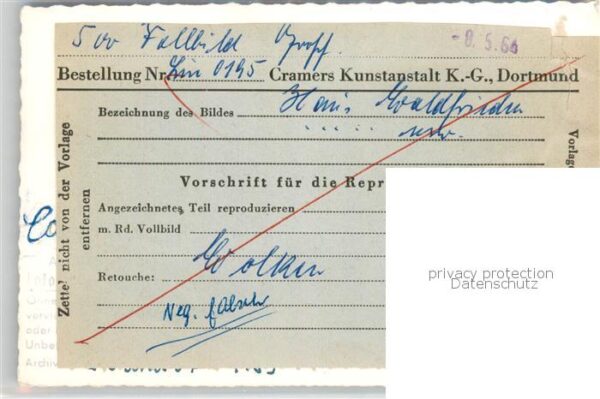 500 Vollbild
-8. 5. 64
Bestellung Nr. 0195 Cramers Kunstanstalt K.-G., Dortmund
Bezeichnung des Bildes Haus Waldfrieden
usw.
Vorschrift für die Repr
Angezeichnetes Teil reproduzieren
m. Rd. Vollbild
Retouche: Wolken
Neg. falsch
Zettel nicht von der Vorlage
entfernen
Vorlage
privacy protection
Datenschutz
oder
Unbe
Archiv